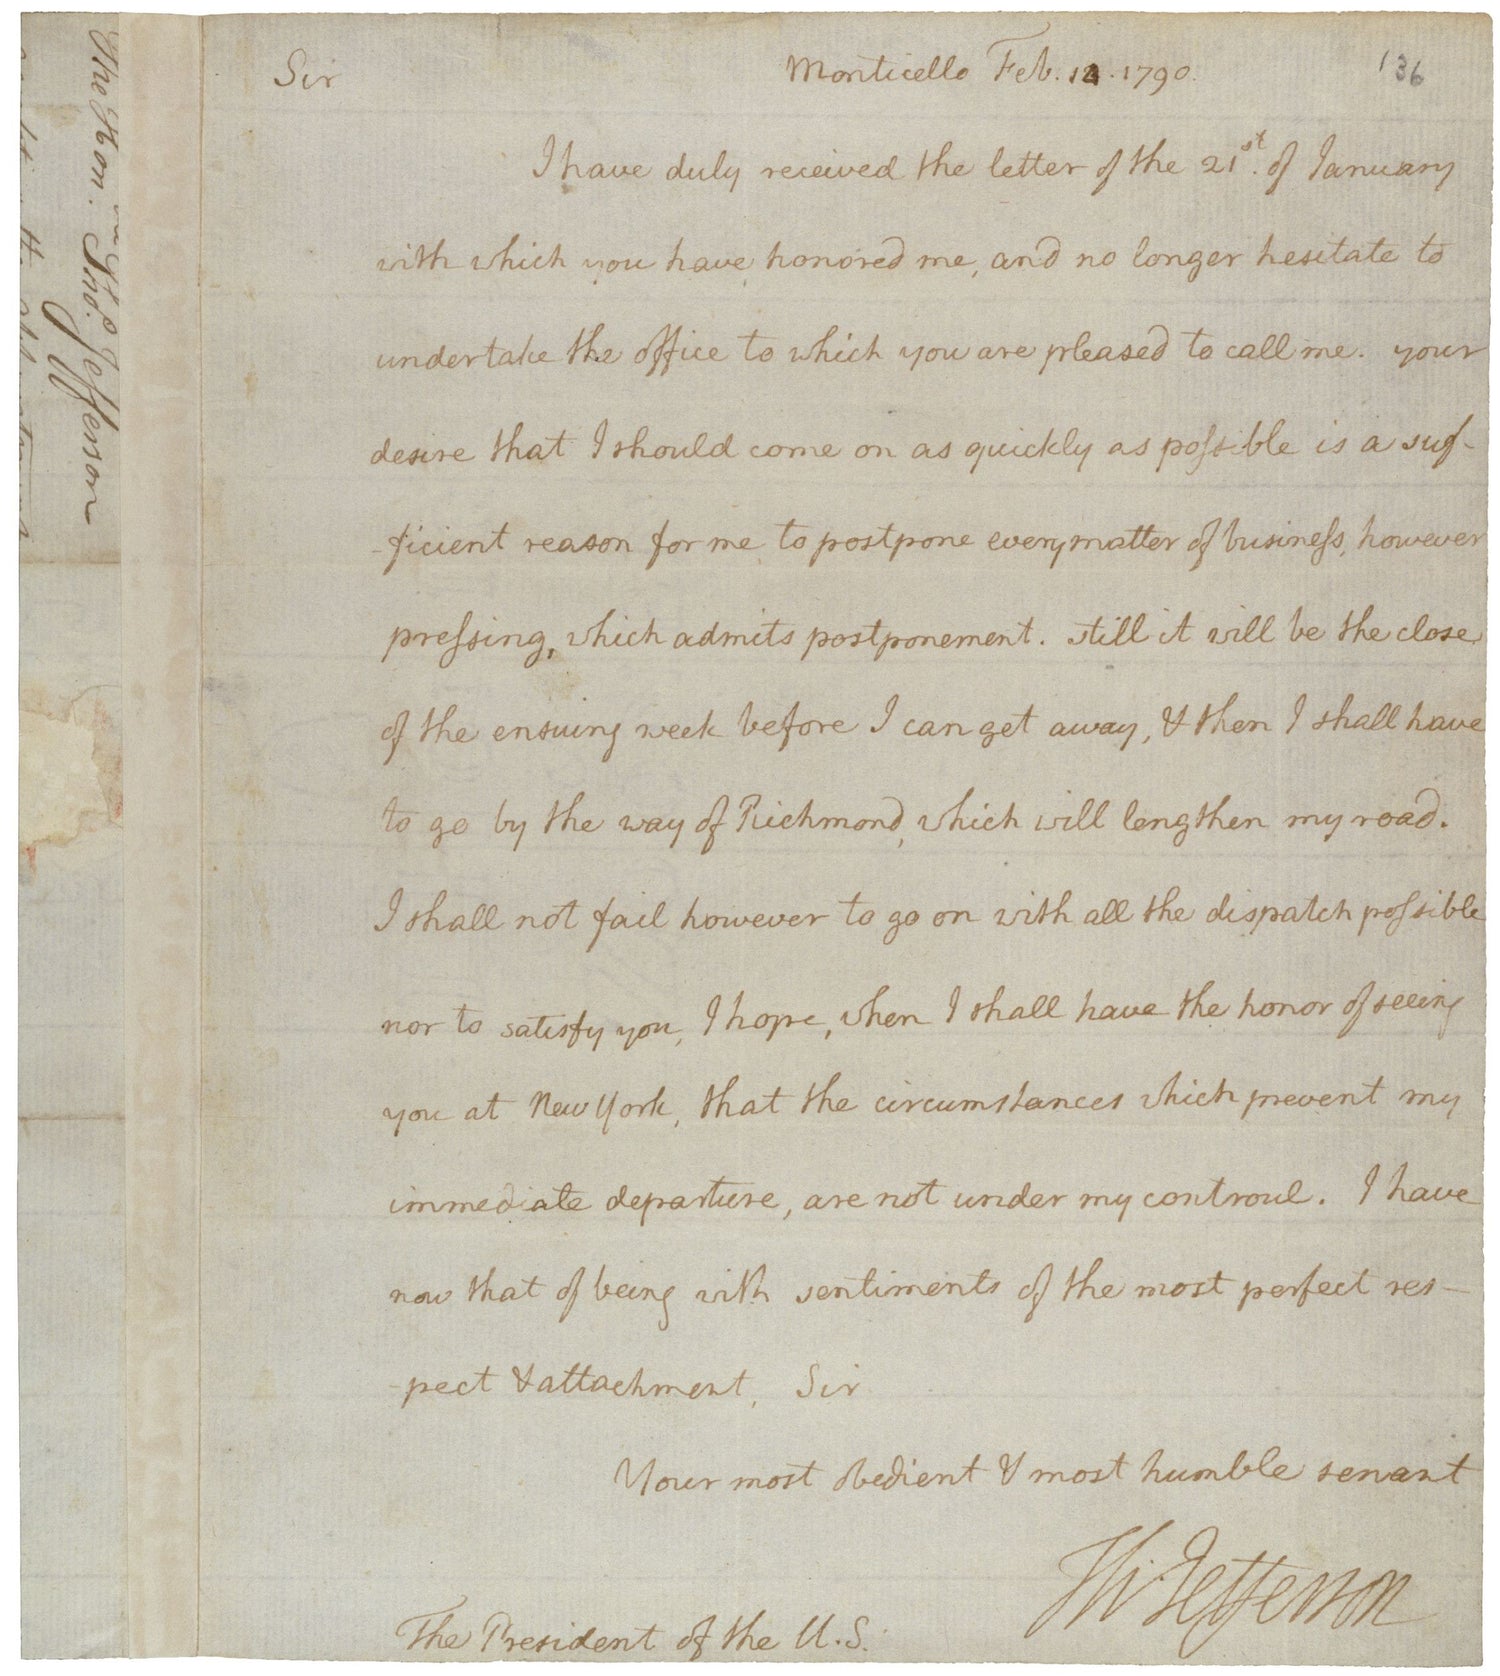 Sir Monticello Feb. 14. 1790. 136
I have duly received the letter of the 21st. of January
with which you have honored me, and no longer hesitate to
undertake the office to which you are pleased to call me. your
desire that I should come on as quickly as poſsible is a suf-
-ficient reason for me to postpone every matter of busineſs, however
preſsing, which admits postponement. still it will be the close
of the ensuing week before I can get away, & then I shall have
to go by the way of Richmond, which will lengthen my road.
I shall not fail however to go on with all the dispatch poſsible
nor to satisfy you, I hope, when I shall have the honor of seeing
you at New York, that the circumstances which prevent my
immediate departure, are not under my controul. I have
now that of being with sentiments of the most perfect res-
-pect & attachment, Sir
Your most obedient & most humble servant
Th: Jefferson
The President of the U.S.
The Hon. Tho. Jefferson